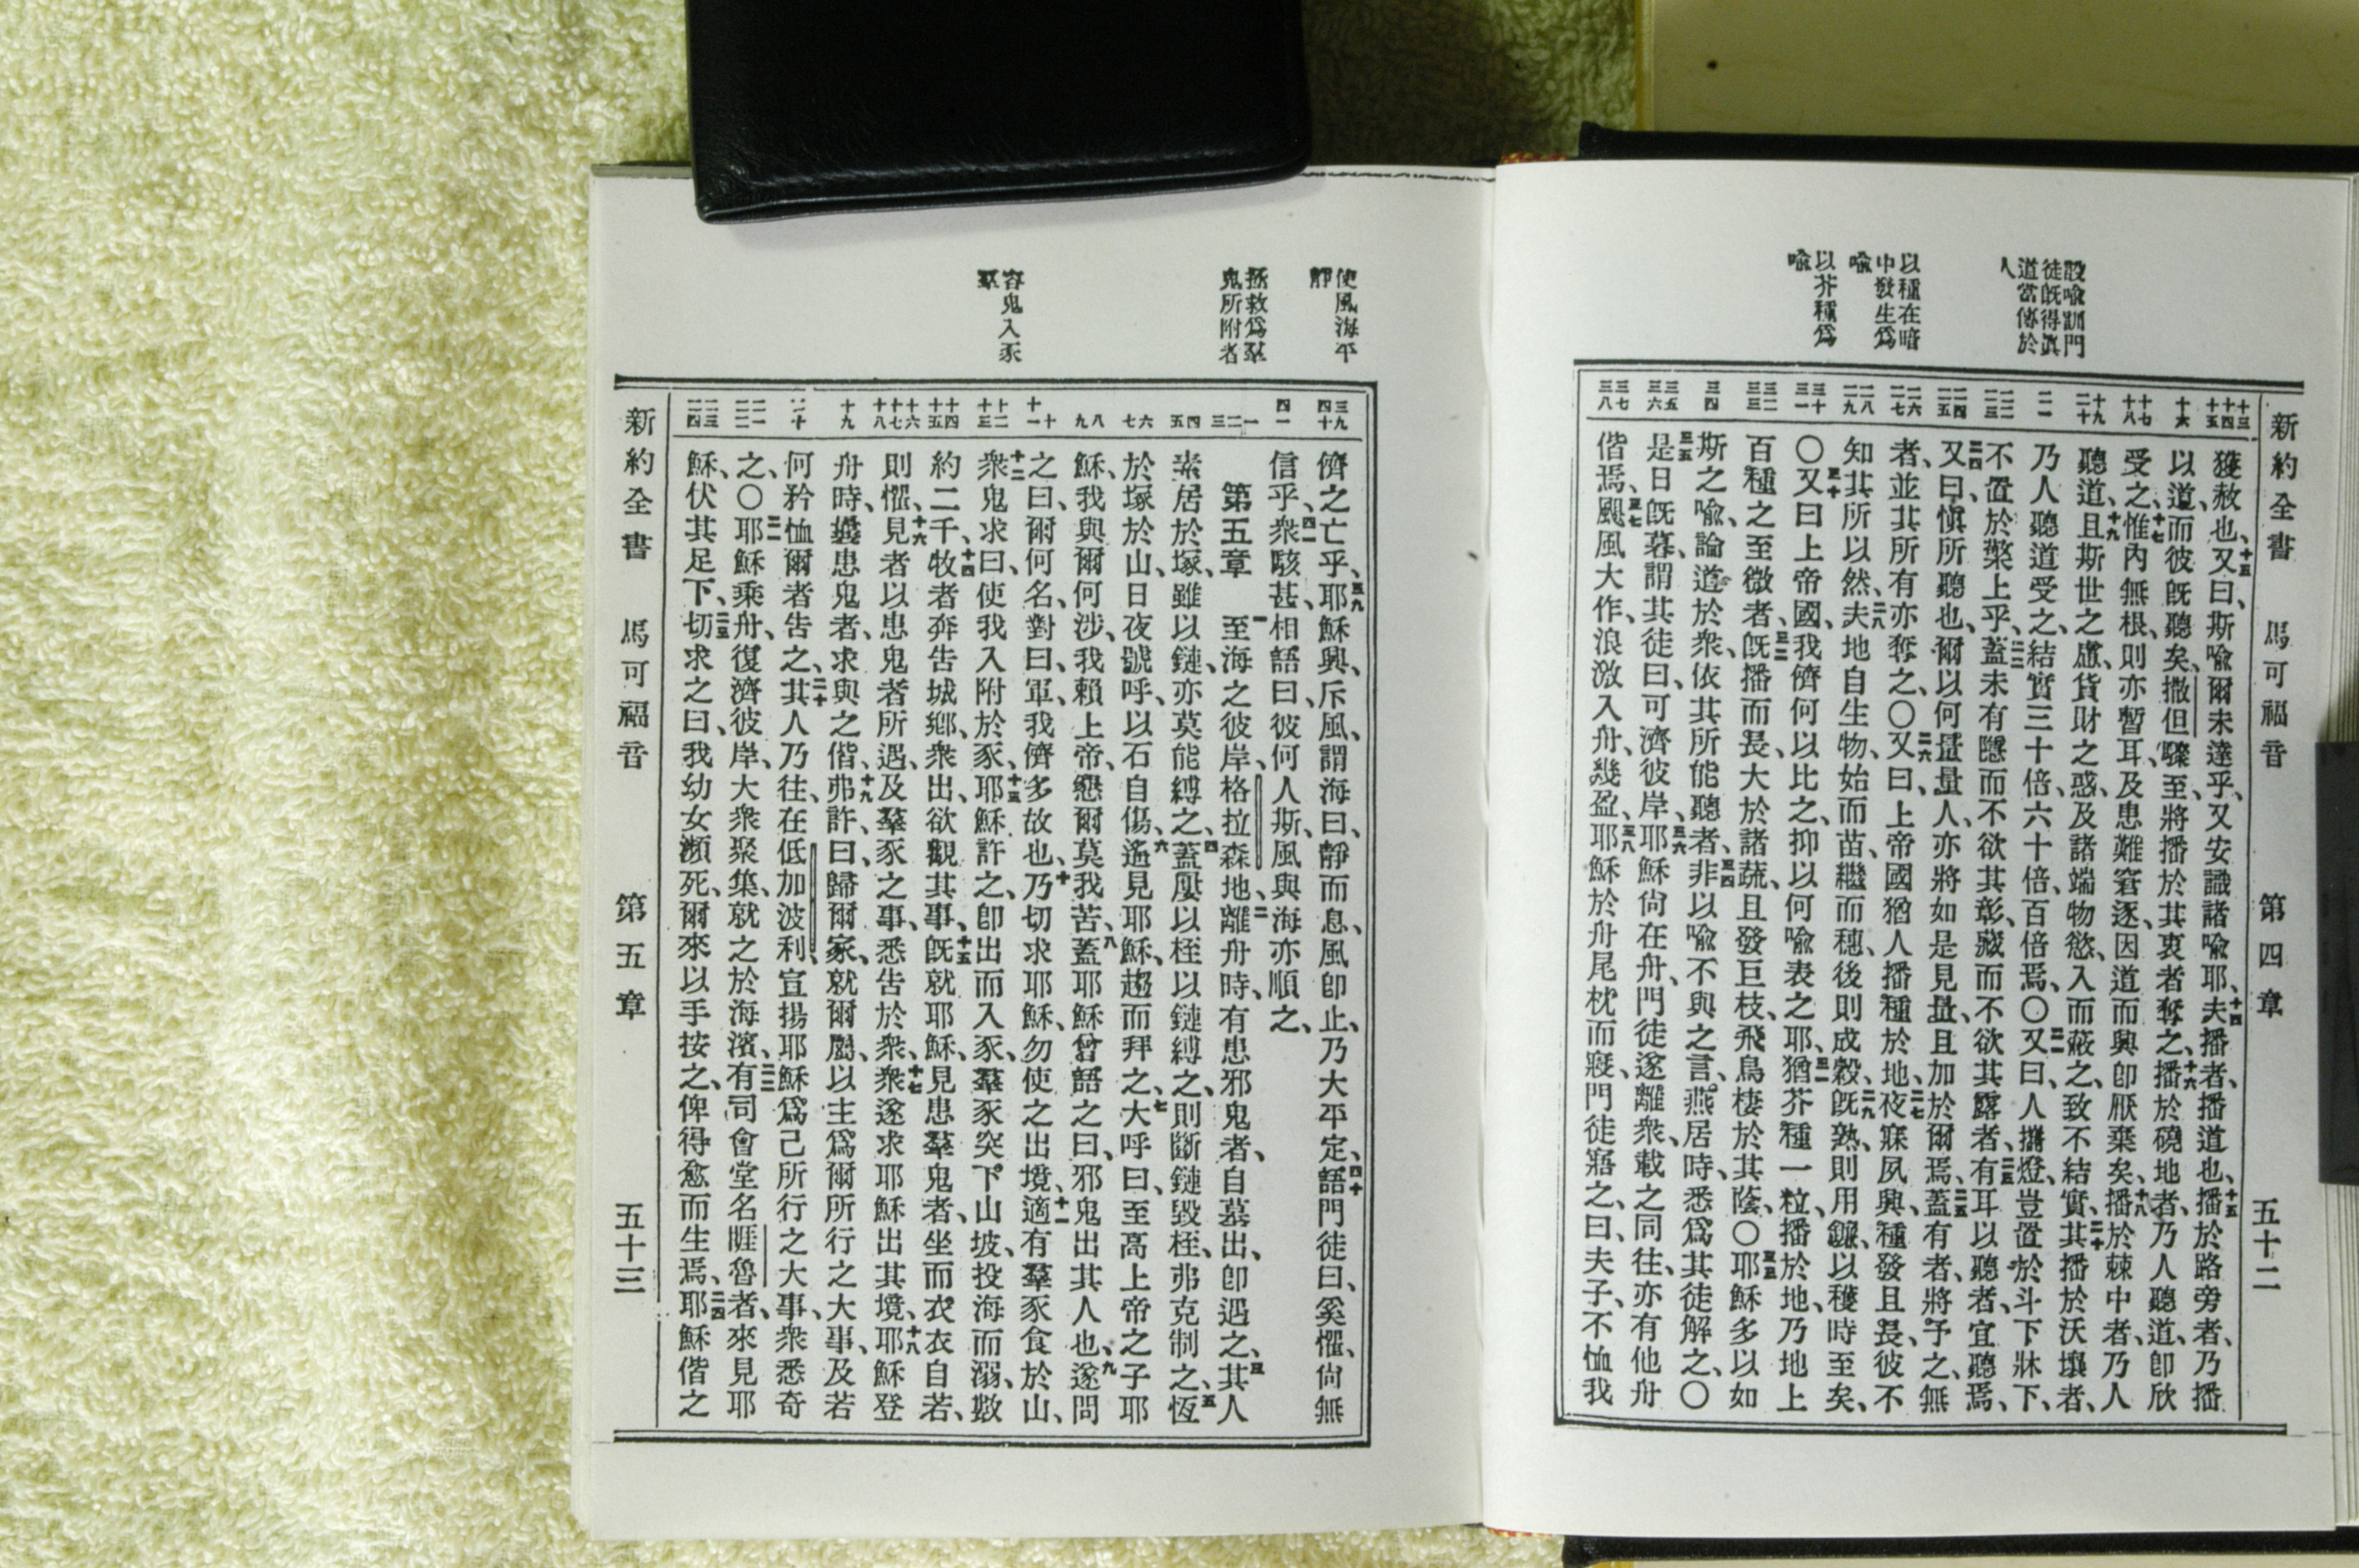 新約全書 馬可福音 第四章 五十二
設喻訓門
徒旣得眞
道當傳於
人
以種在暗
中發生爲
喻
以芥種爲
喻
十三 十四 十五 十六 十七 十八 十九 二十 二一 二二 二三 二四 二五 二六 二七 二八 二九 三十 三一 三二 三三 三四 三五 三六 三七 三八
獲赦也、又曰、斯喩爾未達乎、又安識諸喩耶、十四夫播者、播道也、十五播於路旁者、乃播
以道、而彼旣聽矣、撒但驟至、將播於其衷者奪之、十六播於磽地者、乃人聽道、卽欣
受之、十七惟內無根、則亦暫耳、及患難窘逐、因道而興、卽厭棄矣、十八播於棘中者、乃人
聽道、十九且斯世之慮、貨財之惑、及諸端物慾、入而蔽之、致不結實、二十其播於沃壤者、
乃人聽道受之、結實三十倍、六十倍、百倍焉、〇二一又曰、人攜燈、豈置於斗下牀下、
不置於檠上乎、二二蓋未有隱而不欲其彰、藏而不欲其露者、二三有耳以聽者、宜聽焉、
二四又曰、愼所聽也、爾以何量量人、亦將如是見量、且加於爾焉、二五蓋有者、將予之、無
者、並其所有亦奪之、〇二六又曰、上帝國猶人播種於地、二七夜寐夙興、種發且長、彼不
知其所以然、二八夫地自生物、始而苗、繼而穗、後則成穀、二九旣熟、則用鐮、以穫時至矣、
〇三十又曰、上帝國、我儕何以比之、抑以何喩表之耶、三一猶芥種一粒、播於地、乃地上
百種之至微者、三二旣播而長、大於諸蔬、且發巨枝、飛鳥棲於其蔭、〇三三耶穌多以如
斯之喩、論道於衆、依其所能聽者、三四非以喩不與之言、燕居時、悉爲其徒解之、〇
三五是日旣暮、謂其徒曰、可濟彼岸、三六耶穌尙在舟、門徒遂離衆、載之同往、亦有他舟
偕焉、三七颶風大作、浪激入舟、幾盈、三八耶穌於舟尾枕而寢、門徒寤之、曰、夫子、不恤我
使風海平
靜
拯救爲羣
鬼所附者
容鬼入豕
羣
三九 四十 四一 一 二 三 四 五 六 七 八 九 十 十一 十二 十三 十四 十五 十六 十七 十八 十九 二十 二一 二二 二三 二四
儕之亡乎、三九耶穌興、斥風、謂海曰、靜而息、風卽止、乃大平定、四十語門徒曰、奚懼、尙無
信乎、四一衆駭甚、相語曰、彼何人斯、風與海亦順之、
第五章 一至海之彼岸、格拉森地、二離舟時、有患邪鬼者、自墓出、卽遇之、三其人
素居於塚、雖以鏈、亦莫能縛之、四蓋屢以桎以鏈縛之、則斷鏈毀桎、弗克制之、五恆
於塚於山、日夜號呼、以石自傷、六遙見耶穌、趨而拜之、七大呼曰、至高上帝之子耶
穌、我與爾何涉、我賴上帝、懇爾莫我苦、八蓋耶穌曾語之曰、邪鬼出其人也、九遂問
之曰、爾何名、對曰、軍、我儕多故也、十乃切求耶穌、勿使之出境、十一適有羣豕食於山、
十二衆鬼求曰、使我入附於豕、十三耶穌許之、卽出而入豕、羣豕突下山坡、投海而溺、數
約二千、十四牧者奔告城鄉、衆出、欲觀其事、十五旣就耶穌、見患羣鬼者、坐而衣衣自若、
則懼、十六見者以患鬼者所遇、及羣豕之事、悉告於衆、十七衆遂求耶穌出其境、十八耶穌登
舟時、曩患鬼者、求與之偕、十九弗許、曰、歸爾家、就爾屬、以主爲爾所行之大事、及若
何矜恤爾者告之、二十其人乃往、在低加波利、宣揚耶穌爲己所行之大事、衆悉奇
之、〇二一耶穌乘舟、復濟彼岸、大衆聚集、就之於海濱、二二有司會堂名睚魯者、來見耶
穌、伏其足下、二三切求之曰、我幼女瀕死、爾來以手按之、俾得愈而生焉、二四耶穌偕之
新約全書 馬可福音 第五章 五十三